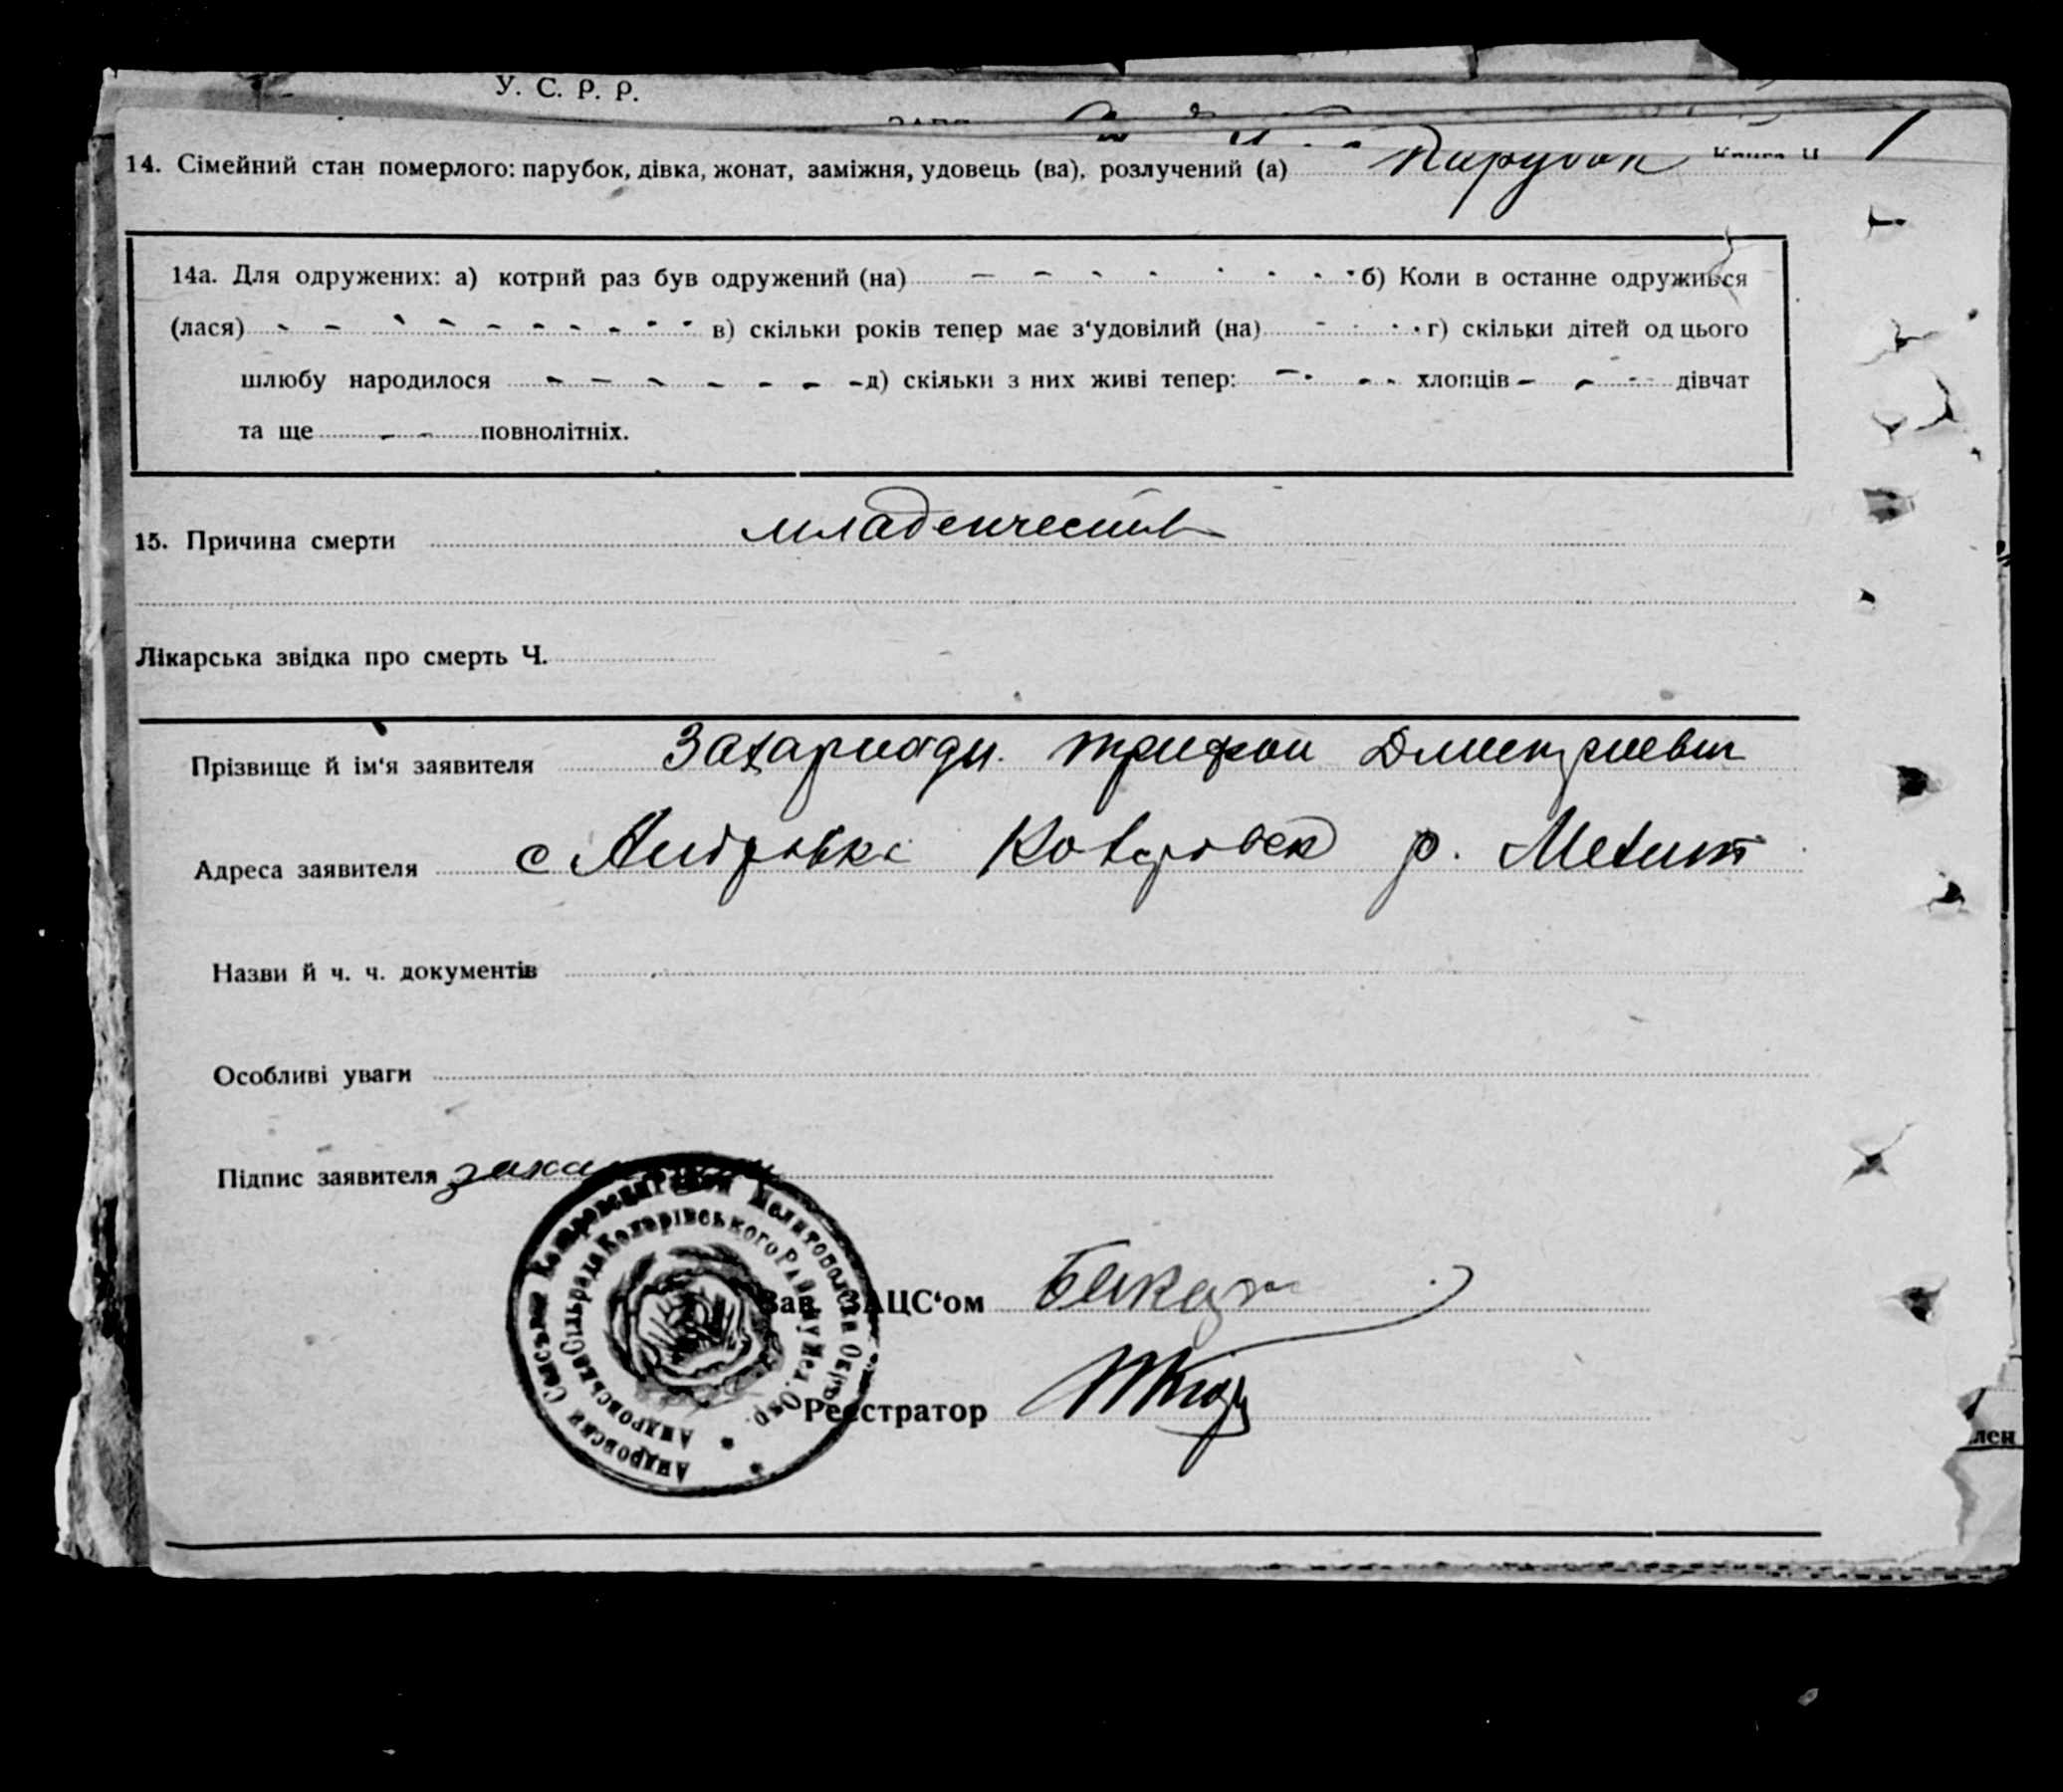 У. С. Р. Р.
14. Сімейний стан померлого: парубок, дівка, жонат, заміжня, удовець (ва), розлучений (а) Парубок
14а. Для одружених: а) котрий раз був одружений (на) - - - - - - - - б) Коли в останне одружився
(лася) - - - - - - - - - - в) скільки років тепер має з‘удовілий (на) - - - - г) скільки дітей од цього
шлюбу народилося - - - - - - - д) скільки з них живі тепер: - - - - хлопців - - - дівчат
та ще - - повнолітніх.
15. Причина смерти младенчеств
Лікарська звідка про смерть Ч.
Прізвище й ім‘я заявителя Захариади Трифон Дмитриевич
Адреса заявителя с Андровка р. Мелит
Назви й ч. ч. документів
Особливі уваги
Підпис заявителя
Андровский Сельсовет Мелитопольск Окр.
Андровська Сільрада Коларівського Району Мел. Окр.
Зав. ЗАЦС‘ом
Реєстратор
лен